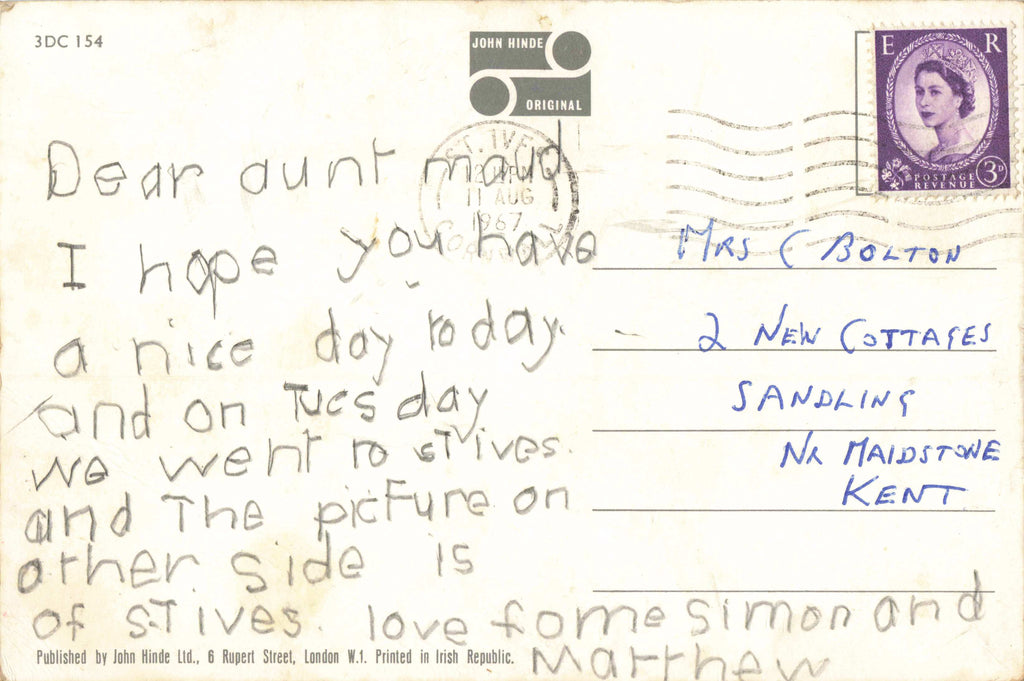 3DC 154
JOHN HINDE
ORIGINAL
E R
POSTAGE
REVENUE
3D
ST. IVES
11 AUG
1967
Dear aunt maud
I hope you have
a nice day today.
and on Tuesday
we went to st ives.
and The picture on
other side is
of s.T ives. love fome simon and
Matthew
MRS C BOLTON
2 NEW COTTAGES
SANDLING
NR MAIDSTONE
KENT
Published by John Hinde Ltd., 6 Rupert Street, London W.1. Printed in Irish Republic.